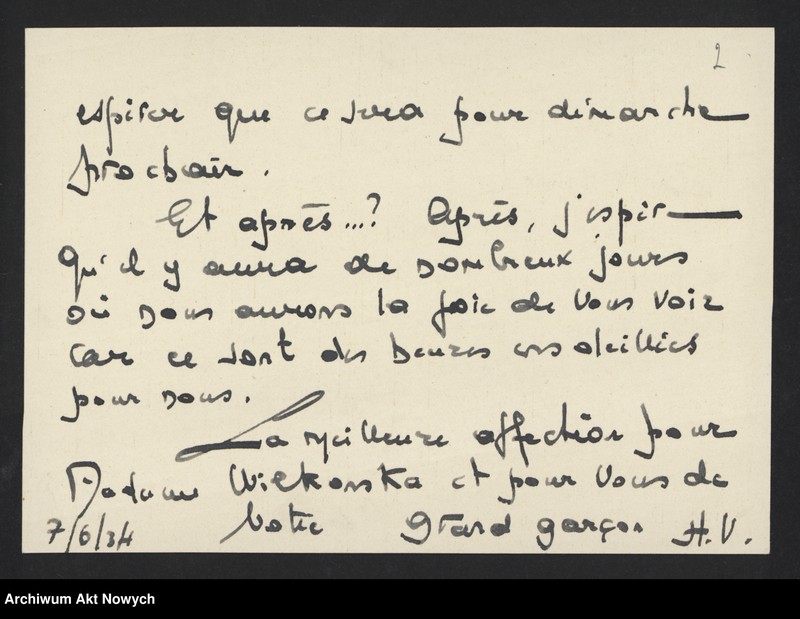 2
espérer que ce sera pour dimanche
prochain.
Et après...? Après, j'espère
Qu'il y aura de nombreux jours
où nous aurons la joie de vous voir
car ce sont des heures ensoleillées
pour nous.
La meilleure affection pour
Madame Wilkonska et pour vous de
votre Grand garçon H.V.
7/6/34
Archiwum Akt Nowych